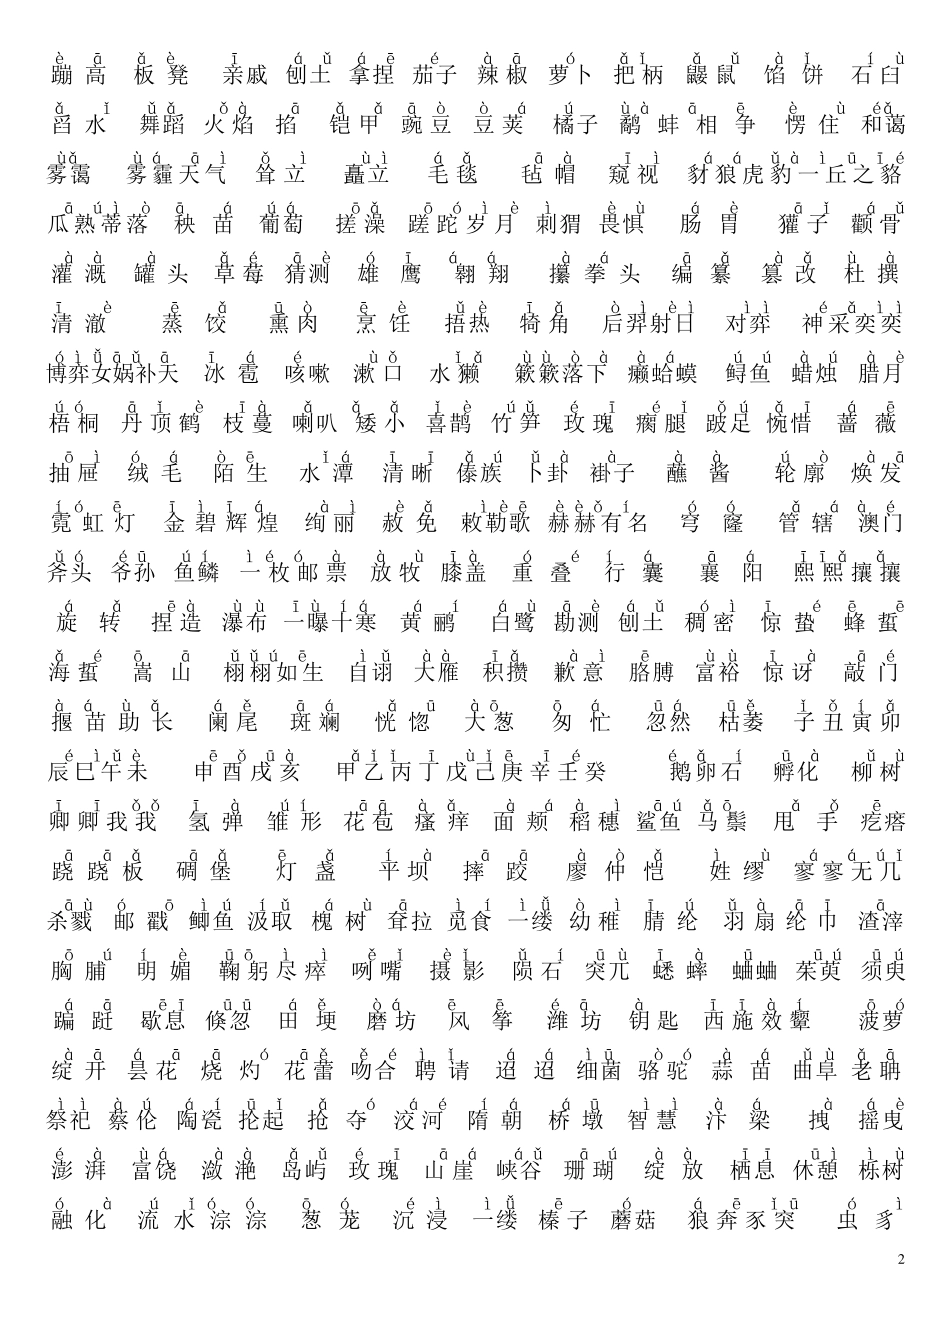 蹦高 板凳 亲戚 刨土 拿捏 茄子 辣椒 萝卜 把柄 鼹鼠 馅饼 石臼
舀水 舞蹈 火焰 掐 铠甲 豌豆 豆荚 橘子 鹬蚌相争 愣住 和蔼
雾霭 雾霾天气 耸立 矗立 毛毯 毡帽 窥视 豺狼虎豹一丘之貉
瓜熟蒂落 秧苗 葡萄 搓澡 蹉跎岁月 刺猬 畏惧 肠胃 獾子 颧骨
灌溉 罐头 草莓 猜测 雄鹰 翱翔 攥拳头 编纂 篡改 杜撰
清澈 蒸饺 熏肉 烹饪 捂热 犄角 后羿射日 对弈 神采奕奕
博弈女娲补天 冰雹 咳嗽 漱口 水獭 簌簌落下 癞蛤蟆 鲟鱼 蜡烛 腊月
梧桐 丹顶鹤 枝蔓 喇叭 矮小 喜鹊 竹笋 玫瑰 瘸腿 跛足 惋惜 蔷薇
抽屉 绒毛 陌生 水潭 清晰 傣族 卜卦 褂子 蘸酱 轮廓 焕发
霓虹灯 金碧辉煌 绚丽 赦免 敕勒歌 赫赫有名 穹窿 管辖 澳门
斧头 爷孙 鱼鳞 一枚邮票 放牧 膝盖 重叠 行囊 襄阳 熙熙攘攘
旋转 捏造 瀑布 一曝十寒 黄鹂 白鹭 勘测 刨土 稠密 惊蛰 蜂蜇
海蜇 嵩山 栩栩如生 自诩 大雁 积攒 歉意 胳膊 富裕 惊讶 敲门
揠苗助长 阑尾 斑斓 恍惚 大葱 匆忙 忽然 枯萎 子丑寅卯
辰巳午未 申酉戌亥 甲乙丙丁戊己庚辛壬癸 鹅卵石 孵化 柳树
卿卿我我 氢弹 雏形 花苞 瘙痒 面颊 稻穗 鲨鱼 马鬃 甩手 疙瘩
跷跷板 碉堡 灯盏 平坝 摔跤 廖仲恺 姓缪 寥寥无几
杀戮 邮戳 鲫鱼 汲取 槐树 耷拉 觅食 一缕 幼稚 腈纶 羽扇纶巾 渣滓
胸脯 明媚 鞠躬尽瘁 咧嘴 摄影 陨石 突兀 蟋蟀 蛐蛐 茱萸 须臾
蹁跹 歇息 倏忽 田埂 磨坊 风筝 潍坊 钥匙 西施效颦 菠萝
绽开 昙花 烧灼 花蕾 吻合 聘请 迢迢 细菌 骆驼 蒜苗 曲阜 老聃
祭祀 蔡伦 陶瓷 抡起 抢夺 洨河 隋朝 桥墩 智慧 汴梁 拽 摇曳
澎湃 富饶 潋滟 岛屿 玫瑰 山崖 峡谷 珊瑚 绽放 栖息 休憩 栎树
融化 流水淙淙 葱茏 沉浸 一缕 榛子 蘑菇 狼奔豕突 虫豸
2